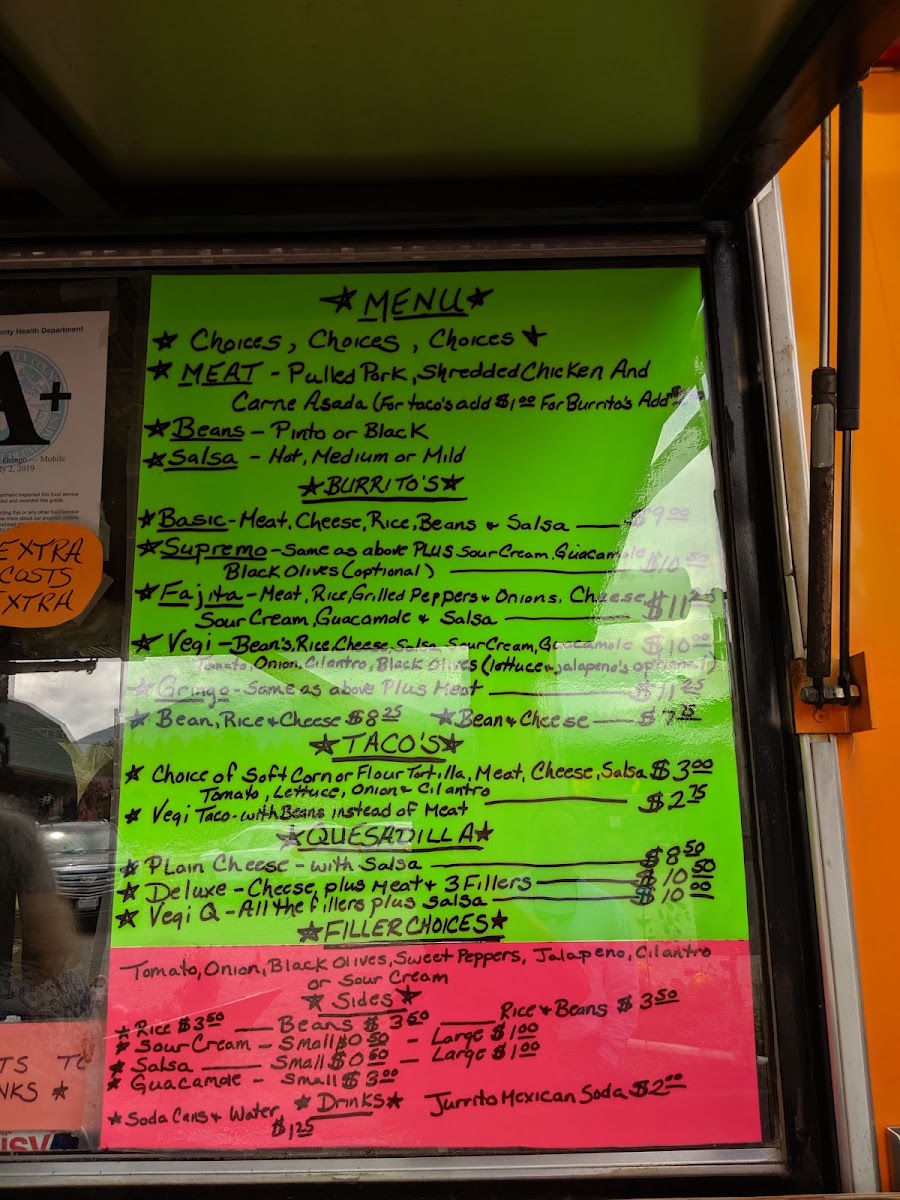 ★ MENU ★
★ Choices, Choices, Choices ★
★ MEAT - Pulled Pork, Shredded Chicken And
Carne Asada (For taco's add $1.00 For Burrito's Add
★ Beans - Pinto or Black
★ Salsa - Hot, Medium or Mild
★ BURRITO'S ★
★ Basic - Meat, Cheese, Rice, Beans & Salsa — $9.00
★ Supremo - Same as above PLUS Sour Cream, Guacamole
Black Olives (optional) — $10.50
★ Fajita - Meat, Rice, Grilled Peppers & Onions, Cheese,
Sour Cream, Guacamole & Salsa — $11.25
★ Vegi - Bean's, Rice, Cheese, Salsa, Sour Cream, Guacamole $10.00
Tomato, Onion, Cilantro, Black Olives (lettuce & jalapeno's optional)
★ Gringo - Same as above Plus Meat — $11.25
★ Bean, Rice & Cheese $8.25 ★ Bean & Cheese — $7.25
★ TACO'S ★
★ Choice of Soft Corn or Flour Tortilla, Meat, Cheese, Salsa $3.00
Tomato, Lettuce, Onion & Cilantro
★ Vegi Taco - with Beans instead of Meat — $2.75
★ QUESADILLA ★
★ Plain Cheese - with Salsa — $8.50
★ Deluxe - Cheese, plus Meat & 3 Fillers — $10.50
★ Vegi Q - All the fillers plus Salsa — $10.00
★ FILLER CHOICES ★
Tomato, Onion, Black Olives, Sweet Peppers, Jalapeno, Cilantro
or Sour Cream
★ Sides ★
★ Rice $3.50 — Beans $3.50 — Rice & Beans $3.50
★ Sour Cream - Small $0.50 - Large $1.00
★ Salsa — Small $0.60 - Large $1.00
★ Guacamole - Small $3.00
★ Drinks ★
★ Soda Cans & Water Jurrito Mexican Soda $2.00
$1.25
unty Health Department
A+
Gringo — Mobile
ly 2, 2019
EXTRA
COSTS
EXTRA